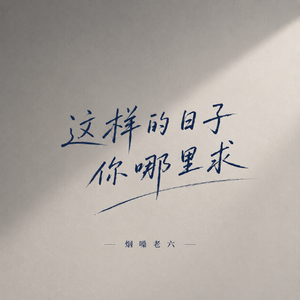 这样的日子
你哪里求
烟嗓老六